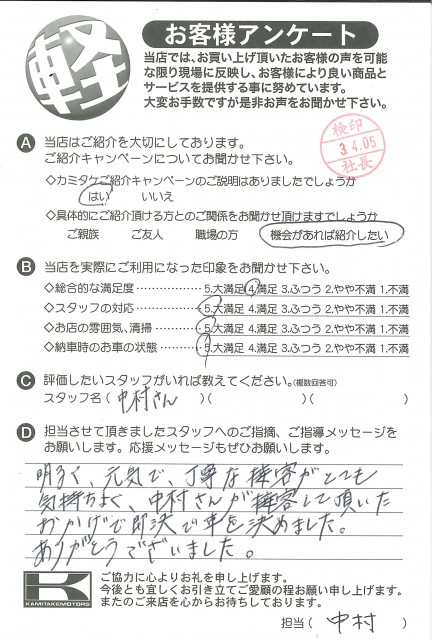 軽
お客様アンケート
当店では、お買い上げ頂いたお客様の声を可能
な限り現場に反映し、お客様により良い商品と
サービスを提供する事に努めています。
大変お手数ですが是非お声をお聞かせ下さい。
検印
3.4.05
社長
A 当店はご紹介を大切にしております。
ご紹介キャンペーンについてお聞かせ下さい。
◇カミタケご紹介キャンペーンのご説明はありましたでしょうか
はい いいえ
◇具体的にご紹介頂ける方とのご関係をお聞かせ頂けますでしょうか
ご親族 ご友人 職場の方 機会があれば紹介したい
B 当店を実際にご利用になった印象をお聞かせ下さい。
◇総合的な満足度 ……………… 5.大満足 4.満足 3.ふつう 2.やや不満 1.不満
◇スタッフの対応 ……………… 5.大満足 4.満足 3.ふつう 2.やや不満 1.不満
◇お店の雰囲気、清掃 ………… 5.大満足 4.満足 3.ふつう 2.やや不満 1.不満
◇納車時のお車の状態 ………… 5.大満足 4.満足 3.ふつう 2.やや不満 1.不満
C 評価したいスタッフがいれば教えてください。(複数回答可)
スタッフ名 ( 中村さん )( )( )
D 担当させて頂きましたスタッフへのご指摘、ご指導メッセージを
お願いします。応援メッセージもぜひお願いします。
明るく、元気で、丁寧な接客がとても
気持ちよく、中村さんが接客して頂いた
おかげで即決で車を決めました。
ありがとうございました。
K
KAMITAKEMOTORS
ご協力に心よりお礼を申し上げます。
今後とも宜しくお引き立てご愛顧の程お願い申し上げます。
またのご来店を心からお待ちしております。
担当 ( 中村 )